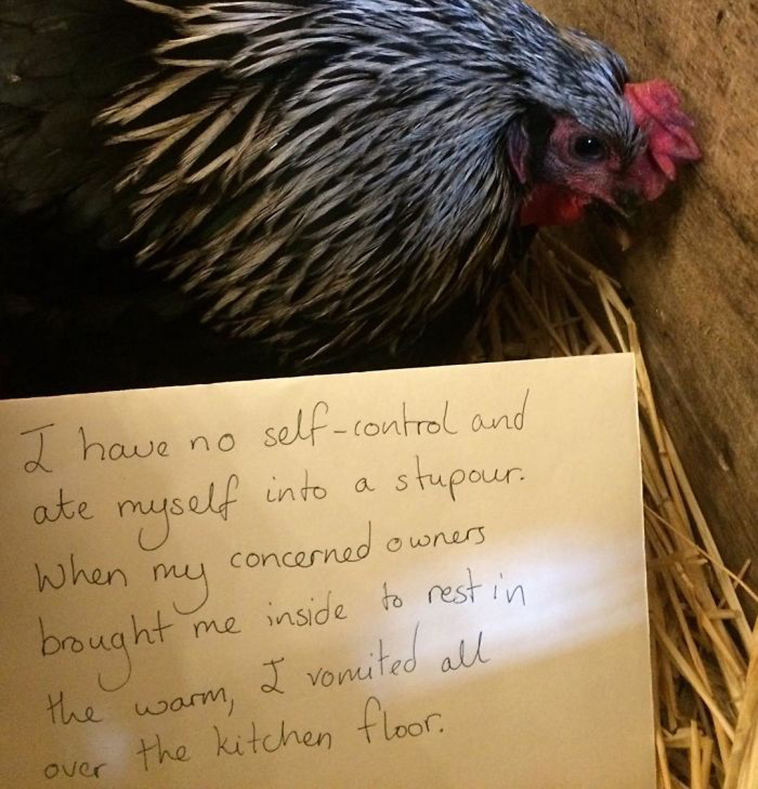 I have no self-control and
ate myself into a stupour.
When my concerned owners
brought me inside to rest in
the warm, I vomited all
over the kitchen floor.